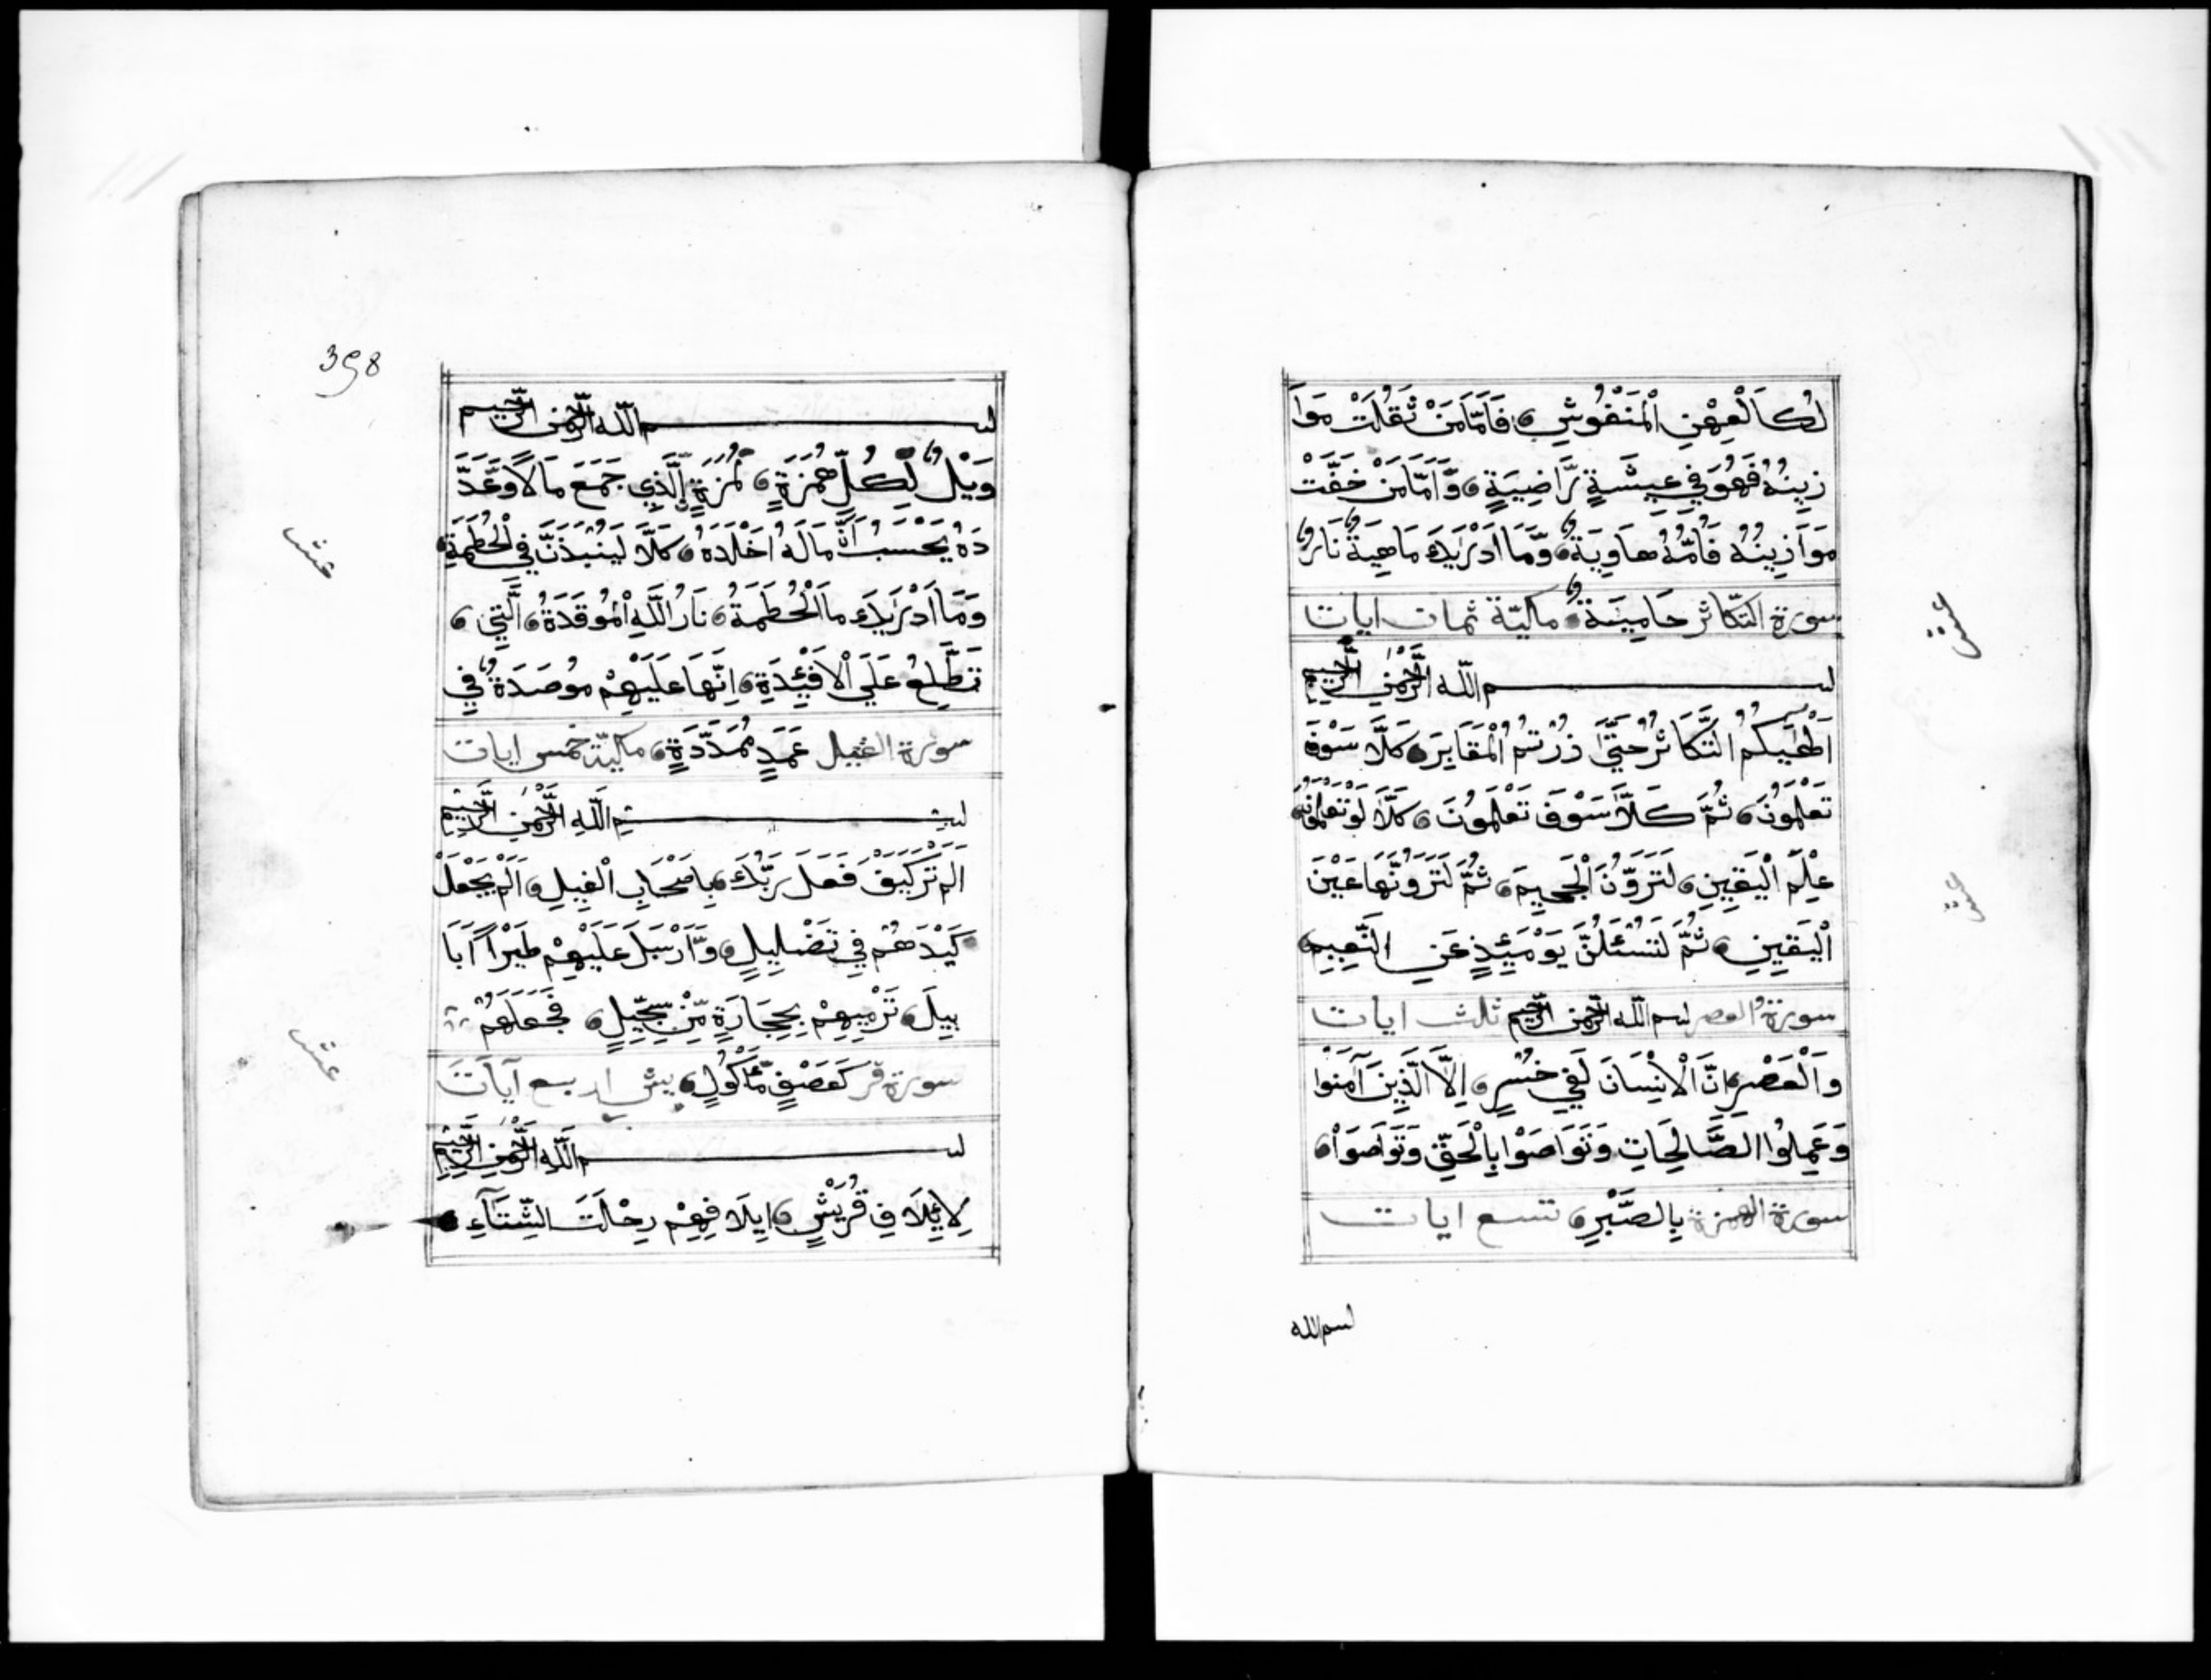 لُكَالْعِهْنِ الْمَنْفُوشِ فَاَمَّا مَنْ ثَقُلَتْ مَوَا
زِينُهُ فَهُوَ فِي عِيشَةٍ رَّاضِيَةٍ وَّاَمَّا مَنْ خَفَّتْ
مَوَازِينُهُ فَاُمُّهُ هَاوِيَةٌ وَّمَا اَدْرٰيكَ مَاهِيَهْ نَارٌ
سورة التكاثر حَامِيَةٌ ماكيّة ثمان ايات
بسم الله الرَّحْمٰنِ الرَّحِيمِ
اَلْهٰيكُمُ التَّكَاثُرُ حَتَّي زُرْتُمُ الْمَقَابِرَ كَلَّا سَوْفَ
تَعْلَمُونَ ثُمَّ كَلَّا سَوْفَ تَعْلَمُونَ كَلَّا لَوْ تَعْلَمُونَ
عِلْمَ الْيَقِينِ لَتَرَوُنَّ الْجَحِيمَ ثُمَّ لَتَرَوُنَّهَا عَيْنَ
الْيَقِينِ ثُمَّ لَتُسْئَلُنَّ يَوْمَئِذٍ عَنِ النَّعِيمِ
سورة العصر بسم الله الرحمن الرحيم ثلث ايات
وَالْعَصْرِ اِنَّ الْاِنْسَانَ لَفِي خُسْرٍ اِلَّا الَّذِينَ آمَنُوا
وَعَمِلُوا الصَّالِحَاتِ وَتَوَاصَوْا بِالْحَقِّ وَتَوَاصَوْا
سورة الهمزة بِالصَّبْرِ تسع ايات
بسم الله
عشر
عشر
398
بسم الله الرحمن الرحيم
وَيْلٌ لِّكُلِّ هُمَزَةٍ لُّمَزَةٍ اِلَّذِي جَمَعَ مَالًا وَّعَدَّ
دَهُ يَحْسَبُ اَنَّ مَالَهُ اَخْلَدَهُ كَلَّا لَيُنْبَذَنَّ فِي الْحُطَمَةِ
وَمَا اَدْرٰيكَ مَا الْحُطَمَةُ نَارُ اللَّهِ الْمُوقَدَةُ الَّتِي
تَطَّلِعُ عَلَي الْاَفْئِدَةِ اِنَّهَا عَلَيْهِمْ مُوصَدَةٌ فِي
سورة الفيل عَمَدٍ مُمَدَّدَةٍ ماكيّة خمس ايات
بسم اللَّهِ الرَّحْمٰنِ الرَّحِيمِ
اَلَمْ تَرَ كَيْفَ فَعَلَ رَبُّكَ بِاَصْحَابِ الْفِيلِ اَلَمْ يَجْعَلْ
كَيْدَهُمْ فِي تَضْلِيلٍ وَّاَرْسَلَ عَلَيْهِمْ طَيْرًا اَبَا
بِيلَ تَرْمِيهِمْ بِحِجَارَةٍ مِّنْ سِجِّيلٍ فَجَعَلَهُمْ
سورة قر كَعَصْفٍ مَّأْكُولٍ يش اربع آيات
بسم اللَّهِ الرَّحْمٰنِ الرَّحِيمِ
لِاِيلَافِ قُرَيْشٍ اِيلَافِهِمْ رِحْلَتَ الشِّتَآءِ
عشر
عشر